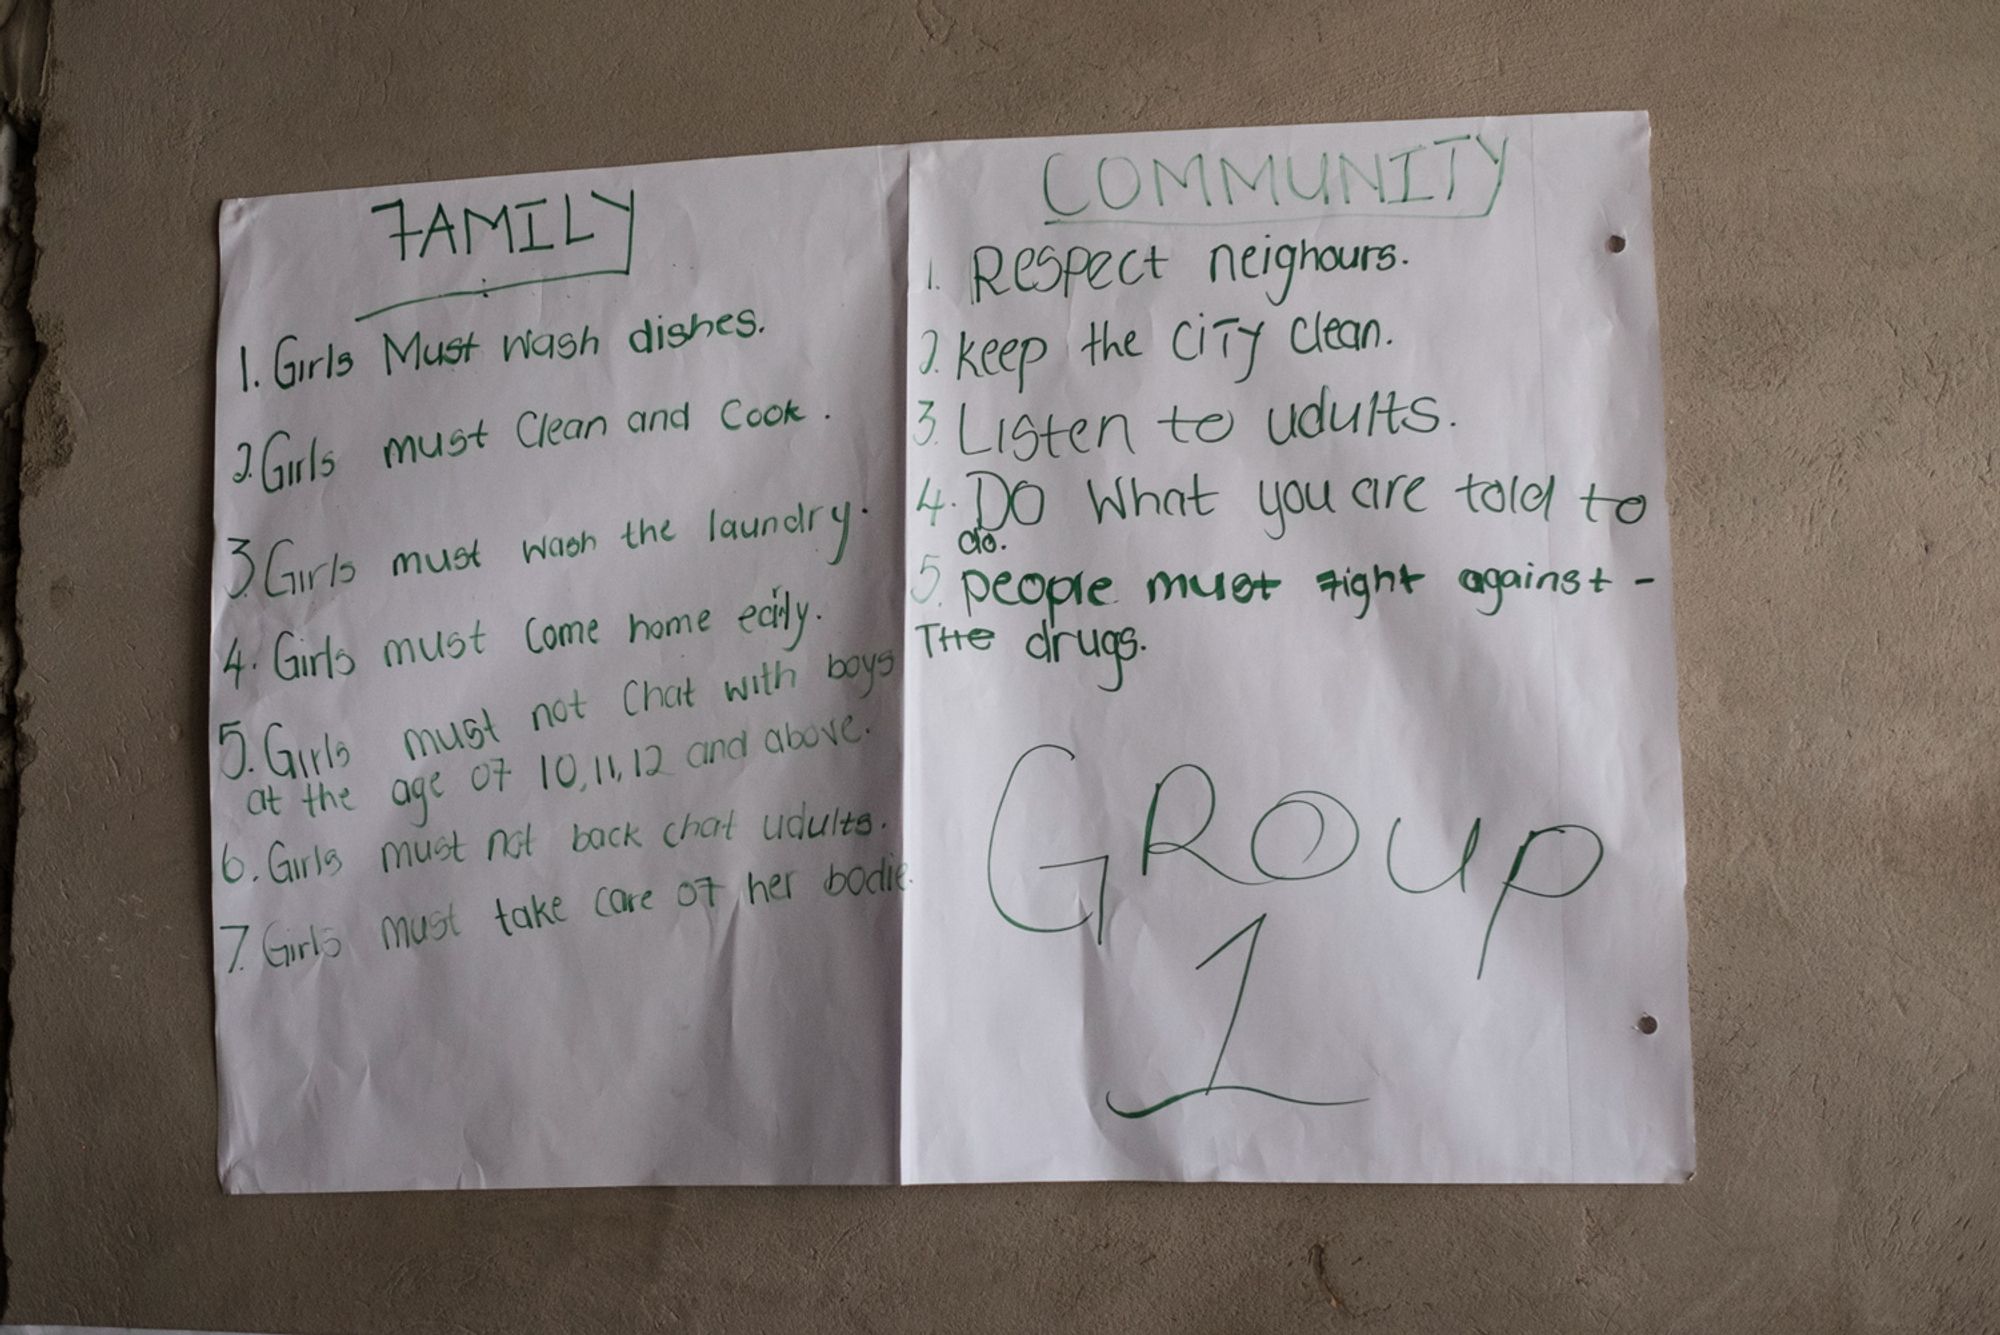 FAMILY
1. Girls Must wash dishes.
2. Girls must Clean and Cook.
3 Girls must wash the laundry.
4. Girls must Come home early.
5. Girls must not Chat with boys
at the age of 10, 11, 12 and above.
6. Girls must not back chat udults.
7. Girls must take care of her bodie.
COMMUNITY
1. Respect neighours.
2. Keep the CITY Clean.
3. Listen to udults.
4. DO What you are told to
do.
5. people must fight against -
THe drugs.
GROUP
1